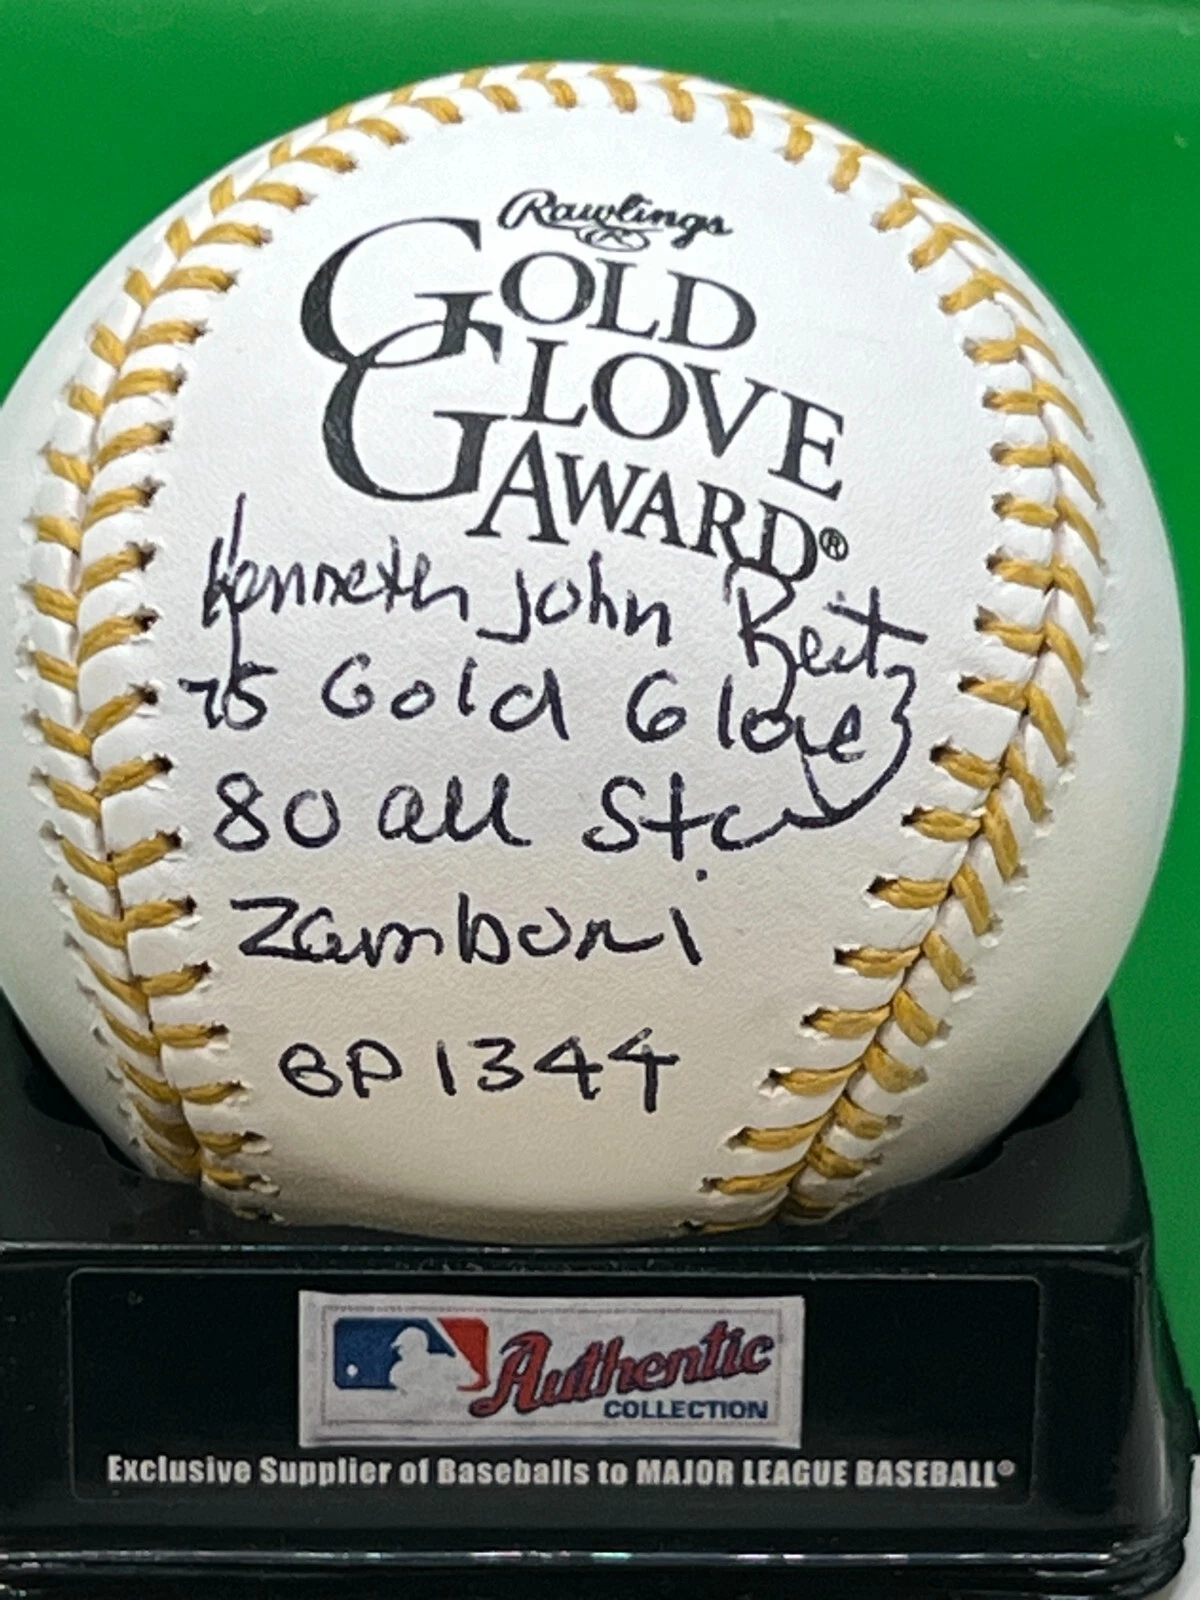 Rawlings
GOLD
GLOVE
AWARD®
Kenneth John Reitz
75 Gold Glove
80 all Star
Zamboni
BP 1344
Authentic
COLLECTION
Exclusive Supplier of Baseballs to MAJOR LEAGUE BASEBALL®